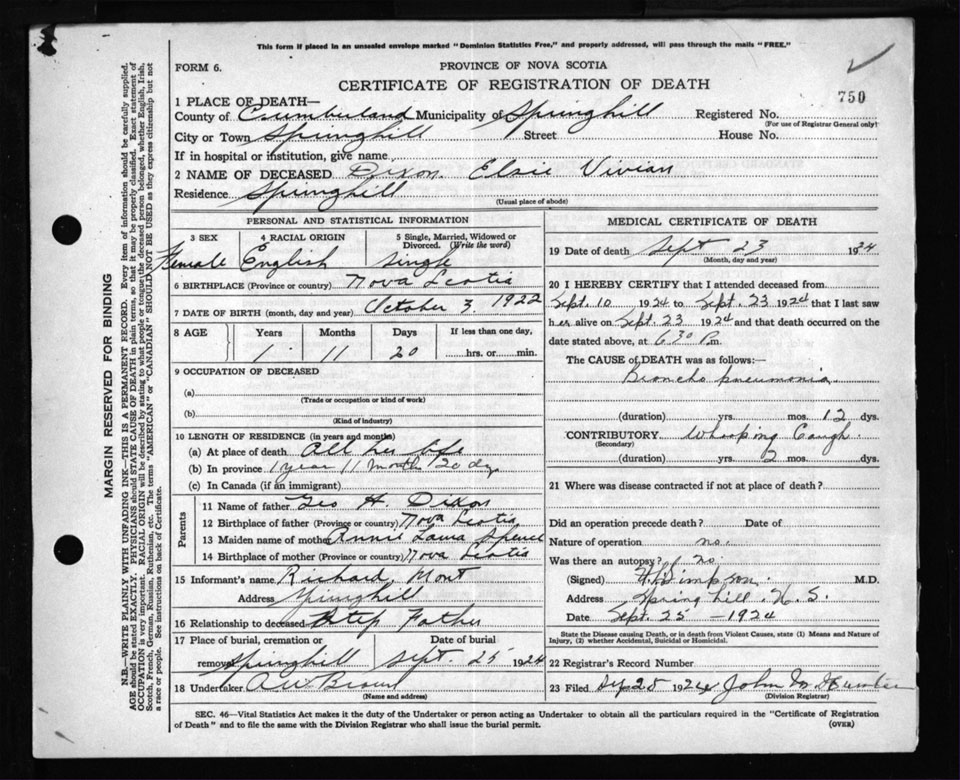 This form if placed in an unsealed envelope marked "Dominion Statistics Free," and properly addressed, will pass through the mails "FREE."
FORM 6.
PROVINCE OF NOVA SCOTIA
CERTIFICATE OF REGISTRATION OF DEATH
750
1 PLACE OF DEATH—
County of Cumberland Municipality of Springhill Registered No.
(For use of Registrar General only)
City or Town Springhill Street House No.
If in hospital or institution, give name
2 NAME OF DECEASED Dixon Elsie Vivian
Residence Springhill
(Usual place of abode)
PERSONAL AND STATISTICAL INFORMATION
3 SEX 4 RACIAL ORIGIN 5 Single, Married, Widowed or Divorced. (Write the word)
Female English Single
6 BIRTHPLACE (Province or country) Nova Scotia
7 DATE OF BIRTH (month, day and year) October 3, 1922
8 AGE Years Months Days If less than one day,
1 11 20 hrs. or min.
9 OCCUPATION OF DECEASED
(a)
(Trade or occupation or kind of work)
(b)
(Kind of industry)
10 LENGTH OF RESIDENCE (in years and months)
(a) At place of death All her life
(b) In province 1 year 11 month 20 dys
(c) In Canada (if an immigrant)
Parents
11 Name of father Geo H. Dixon
12 Birthplace of father (Province or country) Nova Scotia
13 Maiden name of mother Annie Laura
14 Birthplace of mother (Province or country) Nova Scotia
15 Informant's name Richard Mont
Address Springhill
16 Relationship to deceased Step Father
17 Place of burial, cremation or removal Date of burial
Springhill Sept. 25 1924
18 Undertaker A W Brown
(Name and address)
MEDICAL CERTIFICATE OF DEATH
19 Date of death Sept 23 1924
(Month, day and year)
20 I HEREBY CERTIFY that I attended deceased from
Sept. 10 1924 to Sept. 23 1924 that I last saw
her alive on Sept. 23 1924 and that death occurred on the
date stated above, at 6.30 P.m.
The CAUSE of DEATH was as follows:—
Broncho pneumonia
(duration) yrs. mos. 12 dys.
CONTRIBUTORY Whooping Cough
(Secondary)
(duration) yrs. 2 mos. dys.
21 Where was disease contracted if not at place of death?
Did an operation precede death? Date of
Nature of operation no.
Was there an autopsy? no.
(Signed) Simpson. M.D.
Address Spring hill. N. S.
Date Sept. 25 - 1924
State the Disease causing Death, or in death from Violent Causes, state (1) Means and Nature of Injury, (2) whether Accidental, Suicidal or Homicidal.
22 Registrar's Record Number
23 Filed 25 1924 John
(Division Registrar)
SEC. 46—Vital Statistics Act makes it the duty of the Undertaker or person acting as Undertaker to obtain all the particulars required in the "Certificate of Registration
of Death" and to file the same with the Division Registrar who shall issue the burial permit. (OVER)
MARGIN RESERVED FOR BINDING
N.B.—WRITE PLAINLY WITH UNFADING INK—THIS IS A PERMANENT RECORD. Every item of information should be carefully supplied.
AGE should be stated EXACTLY. PHYSICIANS should STATE CAUSE OF DEATH in plain terms, so that it may be properly classified. Exact statement of
OCCUPATION is very important. RACIAL ORIGIN will be described by stating to what people or tongue the deceased person belonged, whether English, Irish,
Scotch, French, German, Russian, Ruthenian, etc. The terms "AMERICAN" or "CANADIAN" SHOULD NOT BE USED as they express citizenship but not
a race or people. See instructions on back of Certificate.